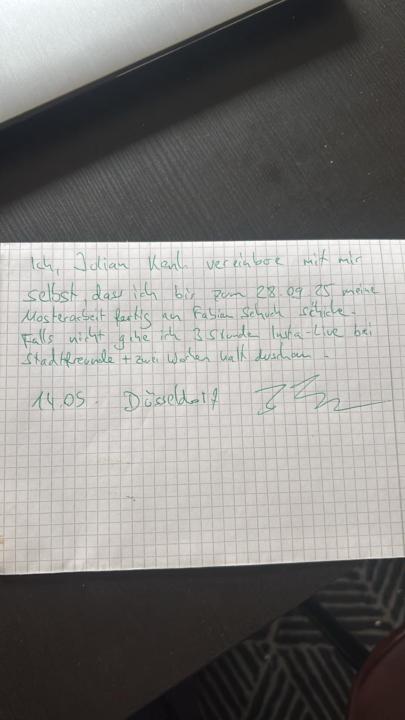 Ich, Julian Kenh vereinbare mit mir
selbst, dass ich bis zum 28.09.25 meine
Masterarbeit fertig an Fabian Schuch schicke.
Falls nicht gehe ich 3 Stunde Insta-Live bei
Stadtfreunde + zwei Wochen kalt duschen.
14.05. Düsseldorf